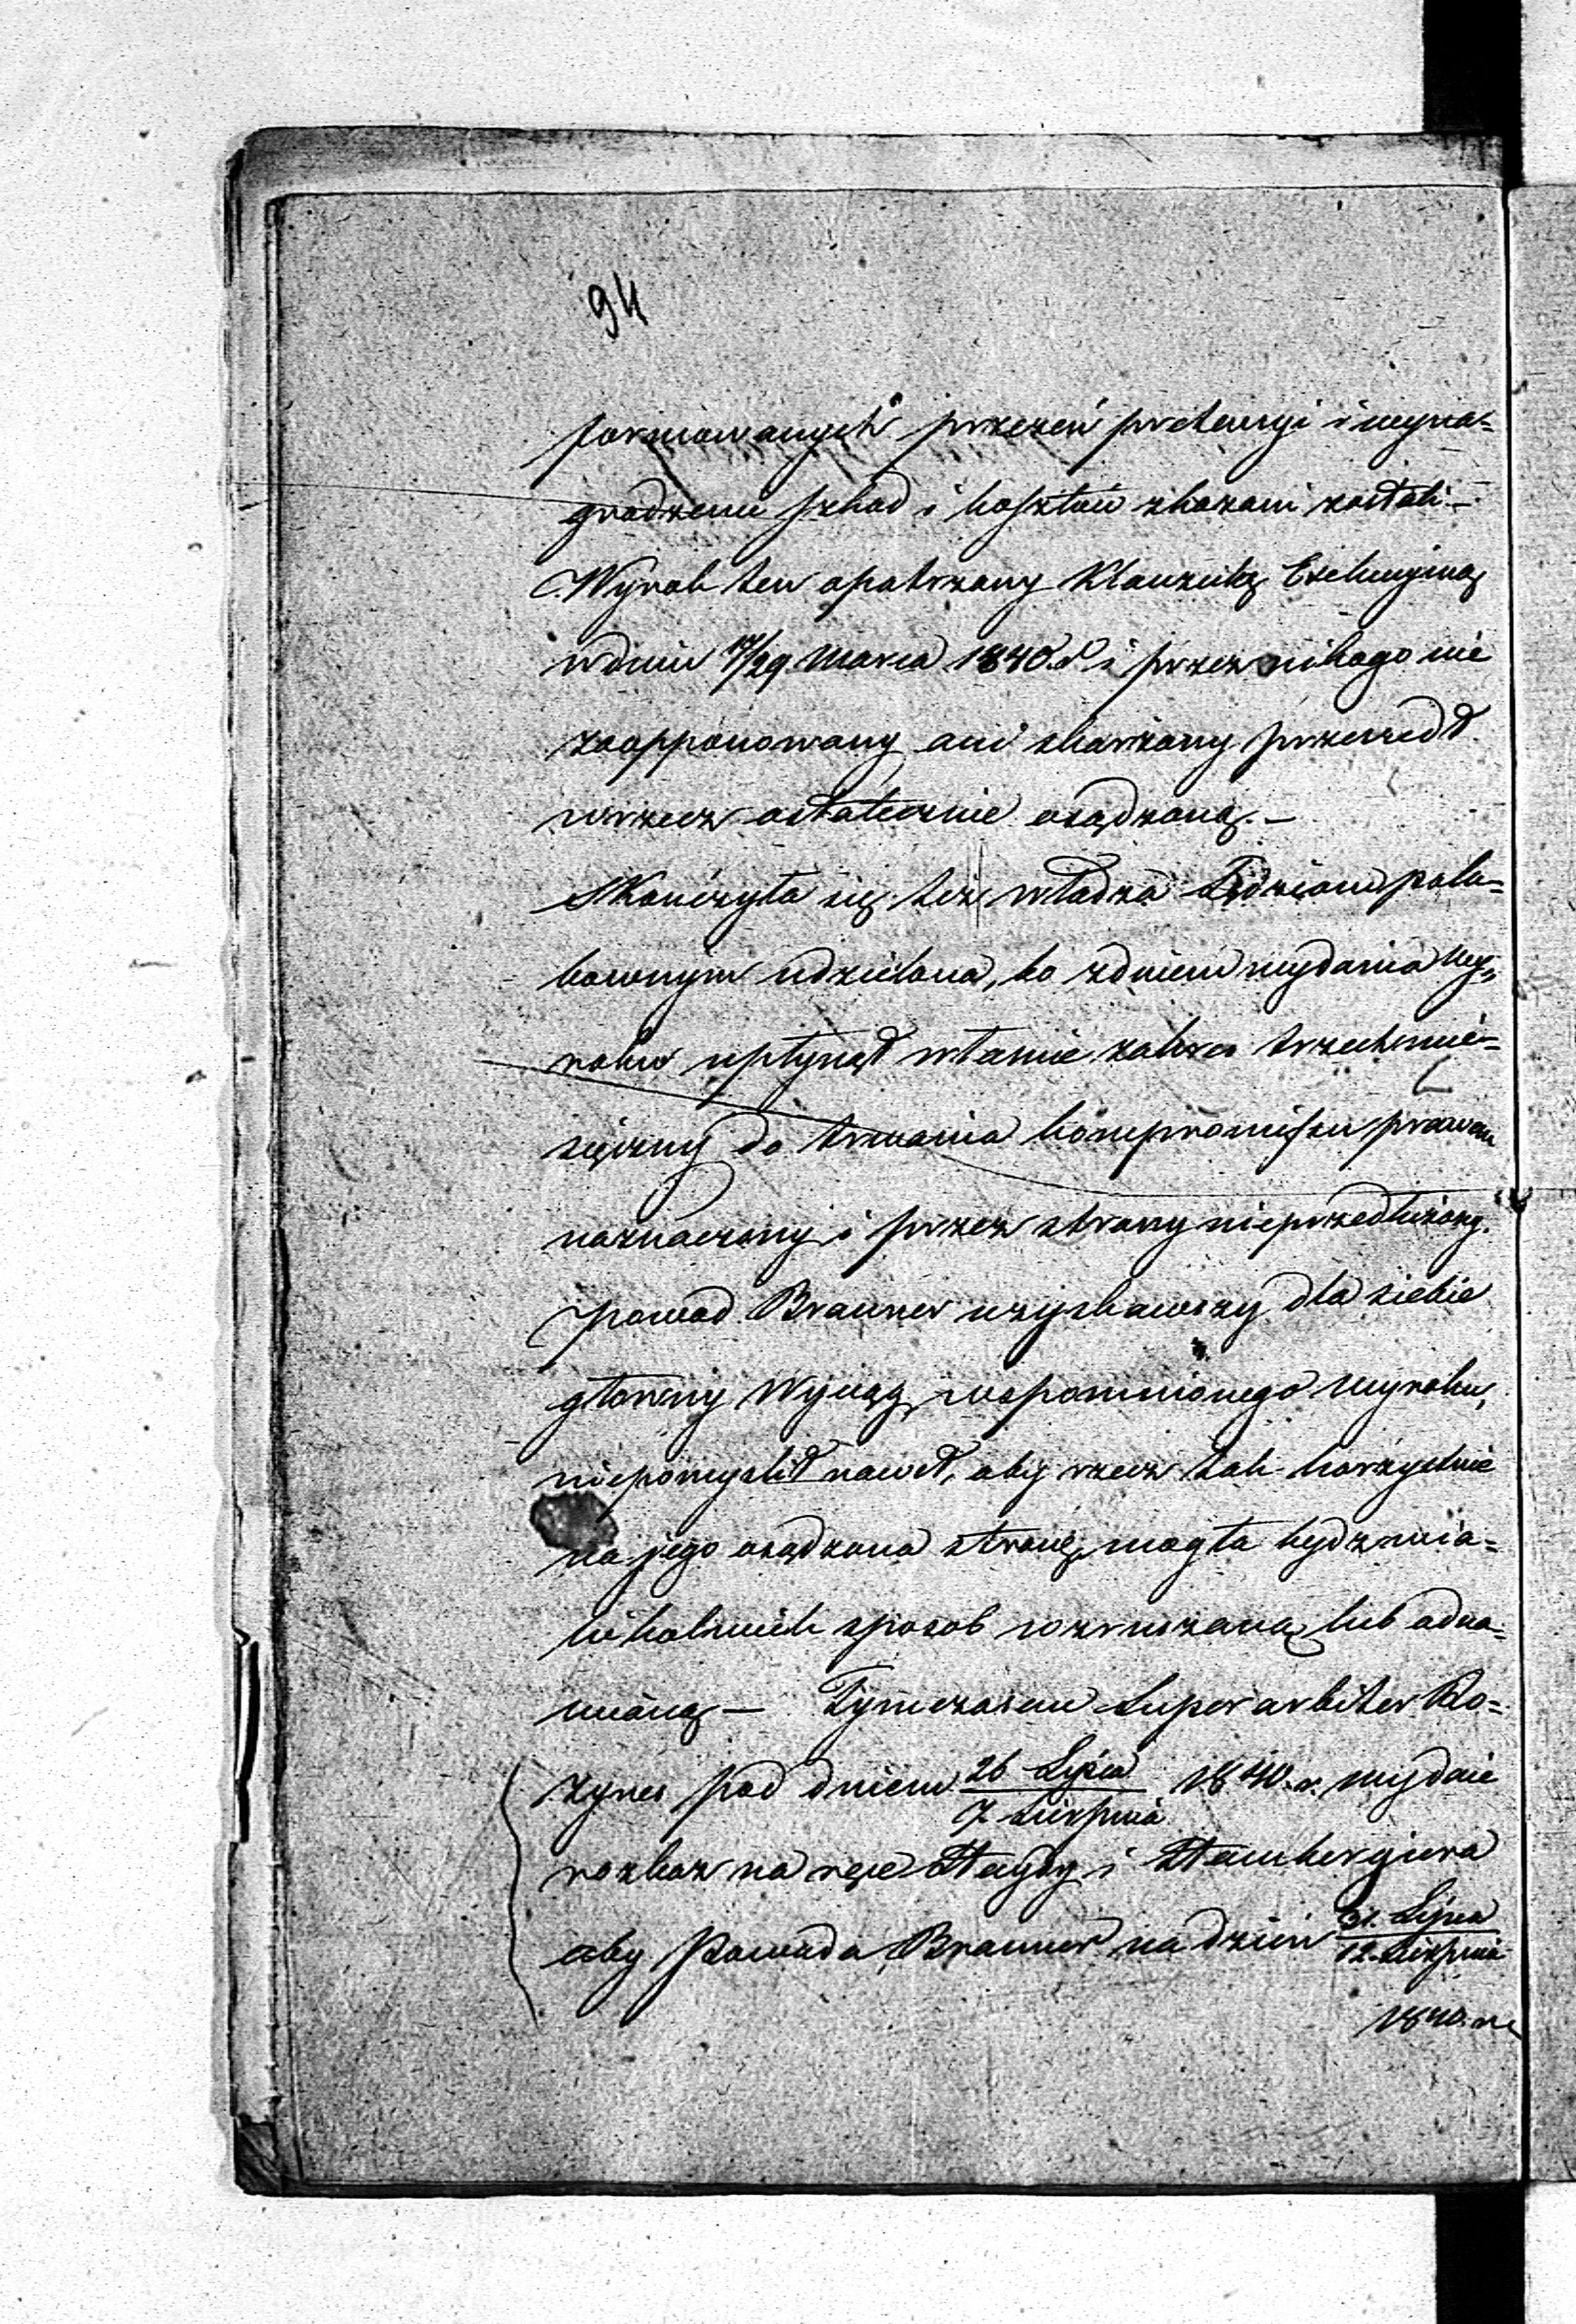 94
formowanych przezeń pretensyi i wyna-
grodzenie szkod i kosztów skazani zostali. —
Wyrok ten opatrzony Klauzulą Exekucyiną
w dniu 17/29 Marca 1840 r. i przez nikogo nie
zaopponowany ani skarżony przeszedł
w rzecz ostatecznie osądzoną. —
Skończyła się też władza Sędziom polu-
bownym udzielona, bo z dniem wydania wy-
roku upłynął właśnie zakres trzechmie-
sięczny do trwania kompromissu prawem
naznaczony i przez strony nieprzedłużony.
Powod Brauner uzyskawszy dla siebie
główny Wyciąg wspomnionego wyroku,
niepomyślił nawet, aby rzecz tak korzystnie
na jego osądzona stronę, mogła bydź w ia-
kikolwiek sposob wzruszaną lub odmie-
nianą — Tymczasem Superarbiter Ro-
życes pod dniem 26 Lipca / 7 Sierpnia 1840. r. wydaie
rozkaz na ręce Hayzy i Sztambergiera
aby Powoda Brauner na dzień 31. Lipca / 12. Sierpnia
1840. r.